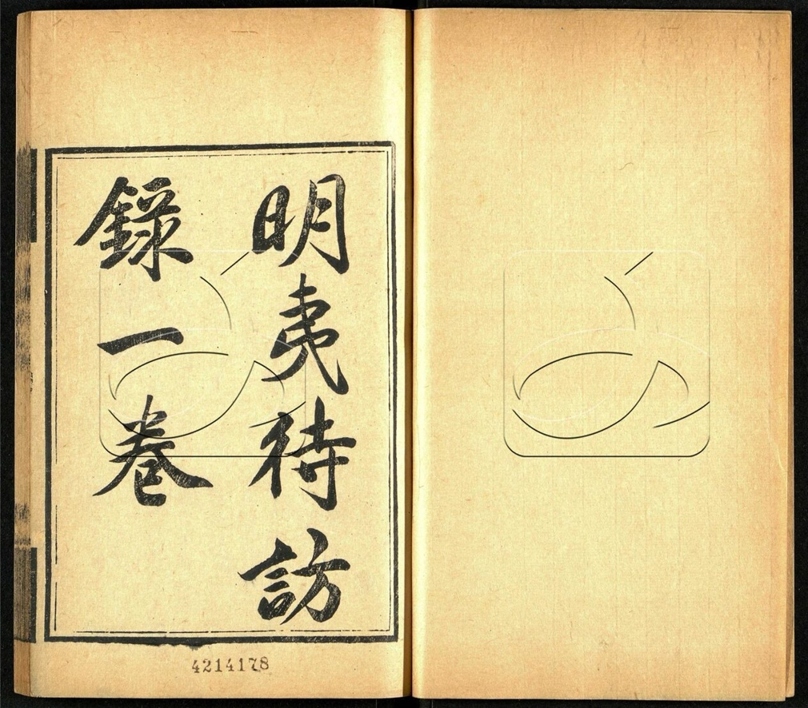 明夷待訪
錄一卷
4214178